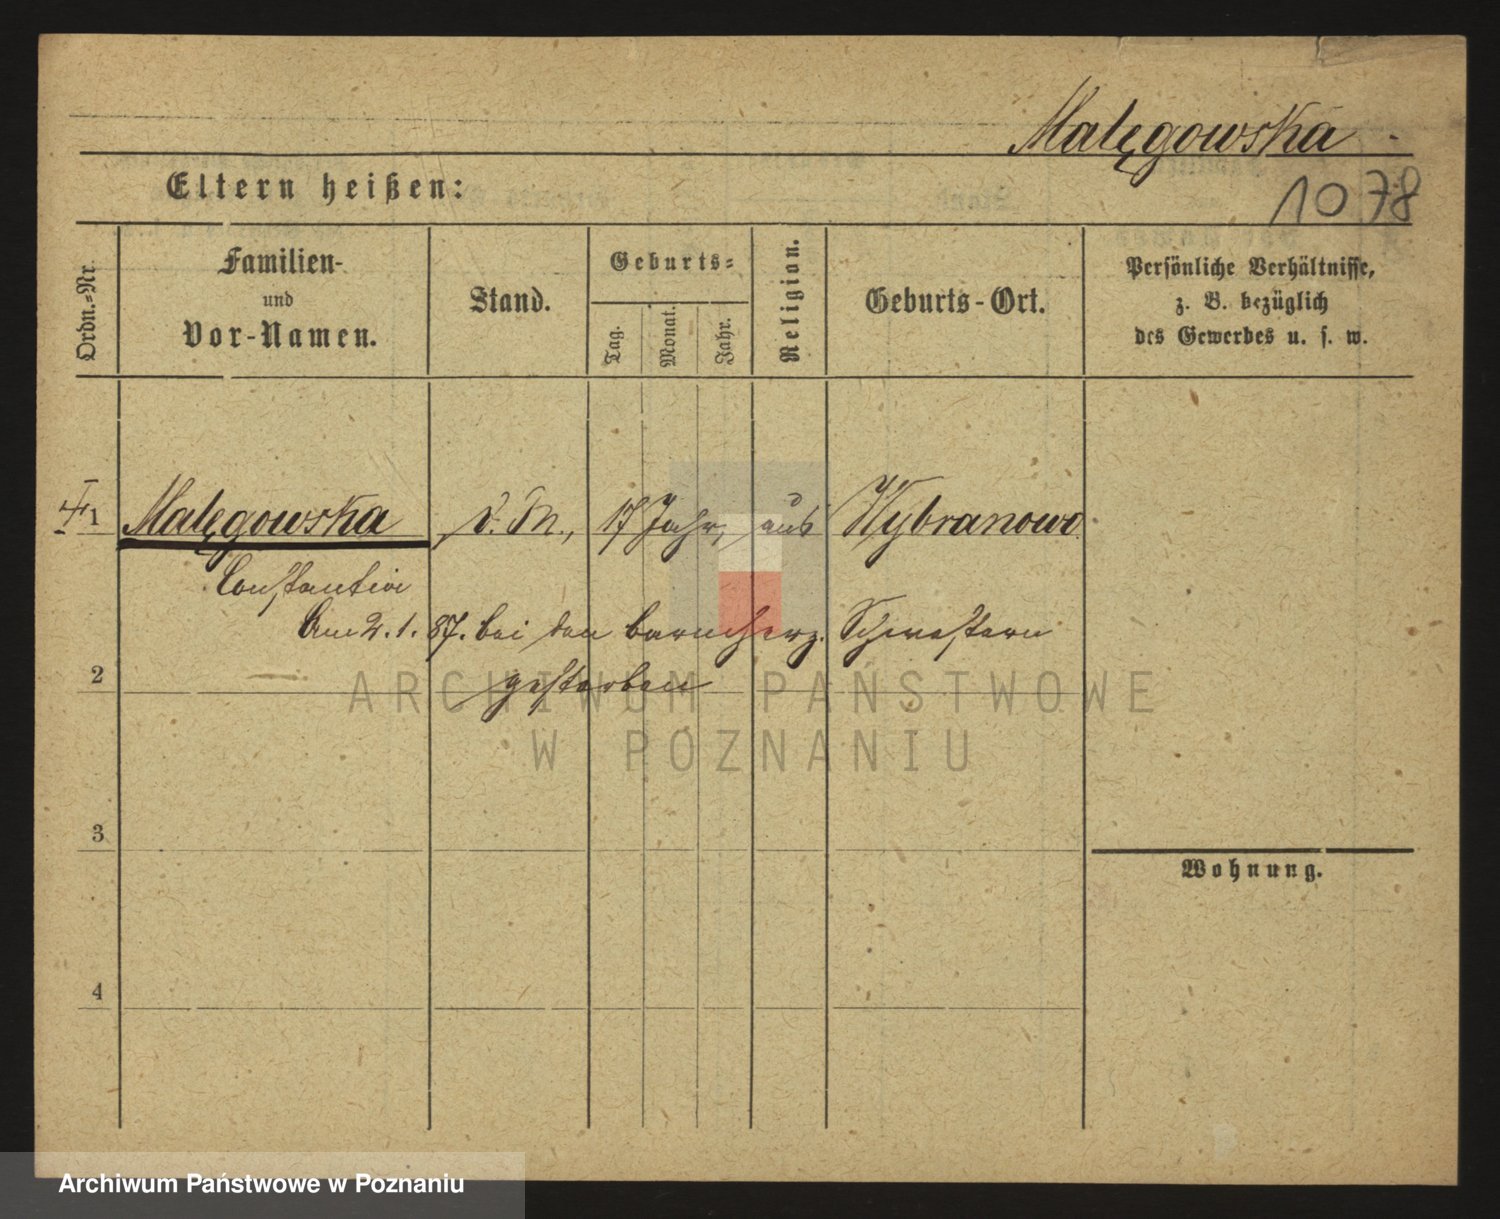 Malęgowska.
Eltern heißen:
1078
Ordn.=Nr.
Familien-
und
Vor-Namen.
Stand.
Geburts=
Tag.
Monat.
Jahr.
Religion.
Geburts-Ort.
Persönliche Verhältnisse,
z. B. bezüglich
des Gewerbes u. s. w.
1 Malęgowska 17 Jahr, aus Wybranowo.
Constantin
Am 2. 1. 87. bei den barmherz. Schwestern
2 gestorben
3
4
Wohnung.
ARCHIWUM PAŃSTWOWE
W POZNANIU
Archiwum Państwowe w Poznaniu